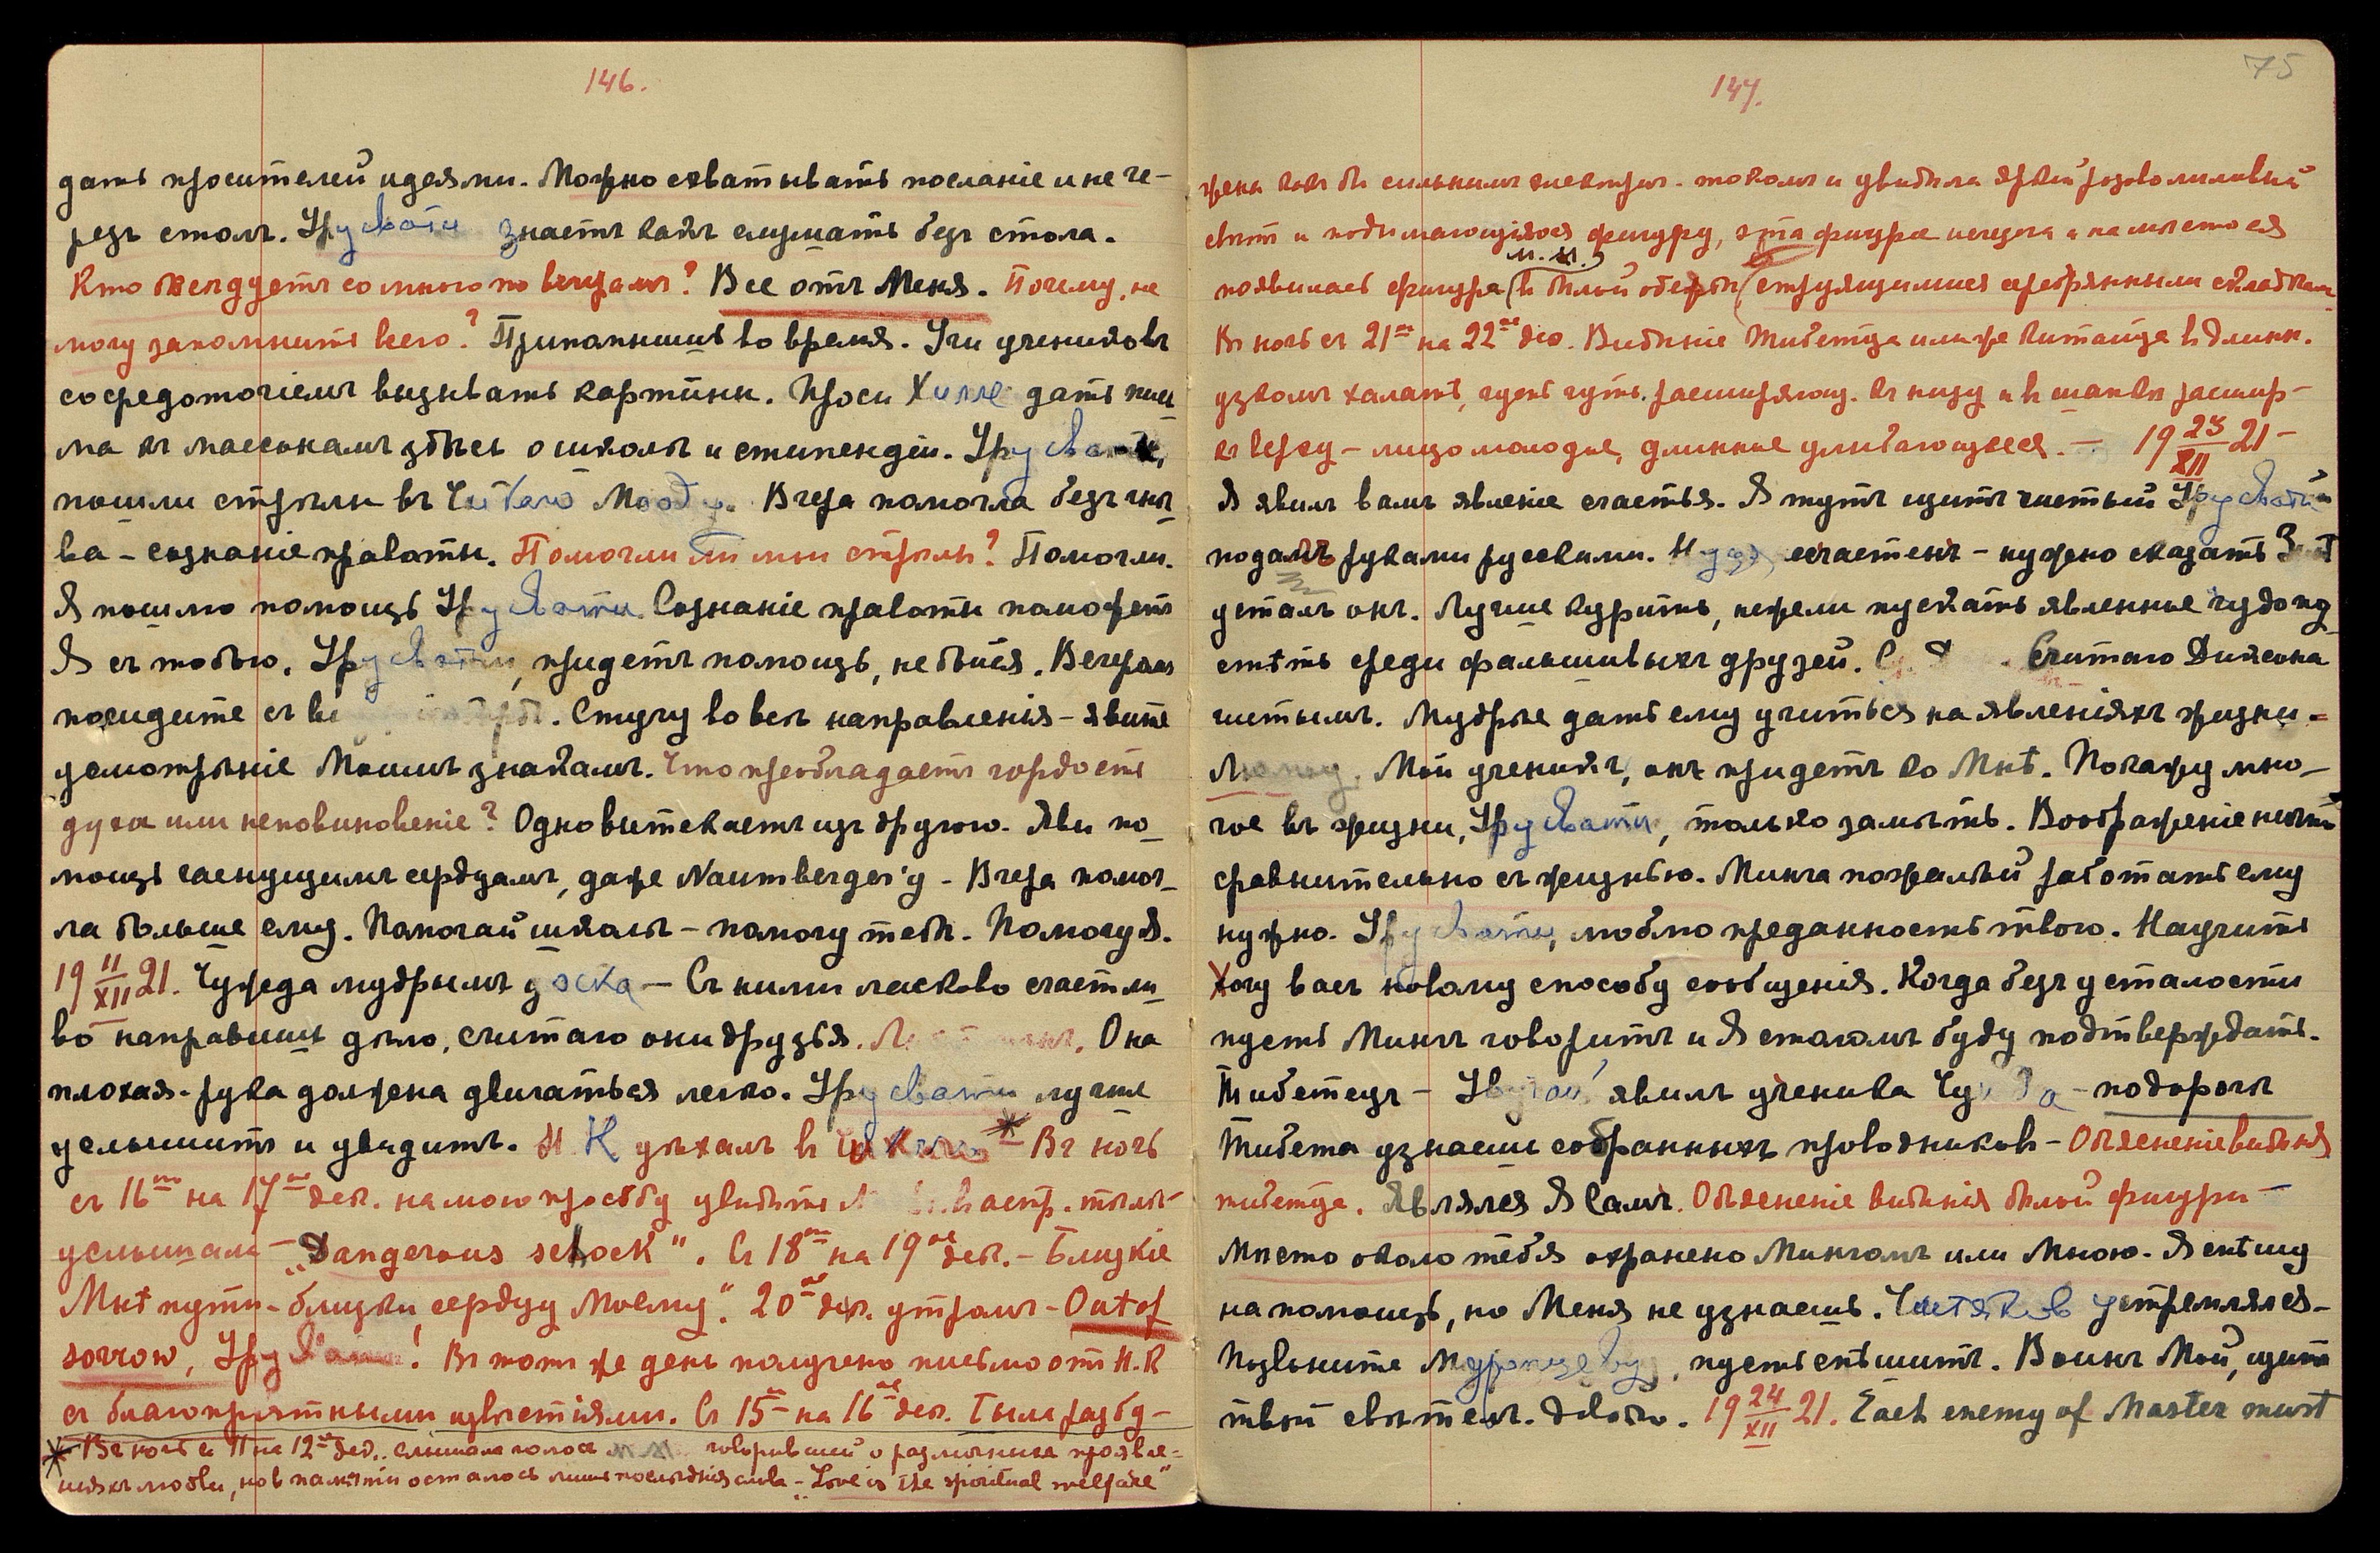 146.
дать просителей идеями. Можно схватывать посланіе и не че-
резъ столъ. Урусвати знаетъ какъ слушать безъ стола.
Кто беседуетъ со мною по вечерамъ? Все отъ Меня. Почему не
могу запомнить всего? Припомнишь во время. Учи учениковъ
сосредоточіемъ вызывать картины. Проси Хилле дать пись
ма къ масонамъ здѣсь о школѣ и стипендіи. Урусвати,
пошли стрѣлы въ Чикаго Moody. Вчера помогла безъ гнѣ
ва – сознаніе правоты. Помогли ли мои стрѣлы? Помогли.
Я пошлю помощь Урусвати. Сознаніе правоты поможетъ
Я съ тобою, Урусвати, придетъ помощь, не бойся. Вечеромъ
посидите съ . Стучу во всѣ направленія – явите
усмотрѣніе Моимъ знакамъ. Что преобладаетъ гордость
духа или неповиновеніе? Одно вытекаетъ изъ другого. Яви по
мощь гаснущимъ сердцамъ, даже Naumberger'у – Вчера помог
ла больше ему. Помогай школѣ – помогу тебѣ. Помогу Я.
19 11/XII 21. Чужда мудрымъ доска – Съ ними ласково счастли
во направишь дѣло, считаю они друзья. Она
плохая – рука должна двигаться легко. Урусвати лучше
услышитъ и увидитъ. Н К уѣхалъ въ Чикаго * – Въ ночь
съ 16го на 17ое дек. на мою просьбу увидѣть астр. тѣло –
услышала – „Dangerous schock". Съ 18го на 19ое дек. – Близкіе
Мнѣ пути – близки сердцу Моему". 20го дек. утромъ – Out of
sorrow, Урусвати! Въ тотъ же день получено письмо отъ Н.К
съ благопріятными извѣстіями. Съ 15го на 16ое дек. была разбу-
* Въ ночь съ 11 на 12ое дек. слышала голосъ М.М. говорившій о различныхъ проявле-
ніяхъ любви, но въ памяти остались лишь послѣднія слова – „Love is the spiritual welfare"
75
147.
жена какъ бы сильнымъ электрич. токомъ и увидѣла яркій розово лиловый
свѣтъ и подымающуюся фигуру, эта фигура исчезла и на мѣсто ея
М. М.
появилась фигура (въ бѣлой одеждѣ (струящимися серебрянными складками
Въ ночь съ 21го на 22ое дек. Видѣніе Тибетца или же китайца въ длинн.
узкомъ халатѣ, чуть чуть расширяющ. къ низу и въ шапкѣ расшир-
къ верху – лицо молодое, длинное улыбающееся. – 19 23/XII 21 –
Я явилъ вамъ явленіе счастья. Я тутъ щитъ чистый Урусвати
подамъ руками русскими. счастенъ – нужно сказать
усталъ онъ. Лучше курить, нежели пускать явленное чудо пу
стѣть среди фальшивыхъ друзей. Считаю Диксона
чистымъ. Мудрѣе дать ему учиться на явленіяхъ жизни. –
Мой ученикъ, онъ придетъ ко Мнѣ. Покажу мно-
гое въ жизни, Урусвати, только замѣть. Воображеніе ничто
сравнительно съ жизнью. Минга пожалѣй работать ему
нужно. Урусвати, люблю преданность твою. Научить
Хочу васъ новому способу сообщенія. Когда безъ усталости
пусть Мингъ говоритъ и Я столомъ буду подтверждать.
Тибетецъ – явилъ ученика – по дорогѣ
Тибета узнаешь собранныхъ проводниковъ – Объясненіе видѣнія
тибетца. Являлся Я Самъ. Объясненіе видѣнія бѣлой фигуры –
Мѣсто около тебя охранено Мингомъ или Мною. Я спѣшу
на помощь, но Меня не узнаешь. Чистяковъ устремлялся –
Позвоните Мдропцеву, пусть спѣшитъ. Воинъ Мой, щитъ
твой свѣтелъ. Довольно. 19 24/XII 21. Each enemy of Master must